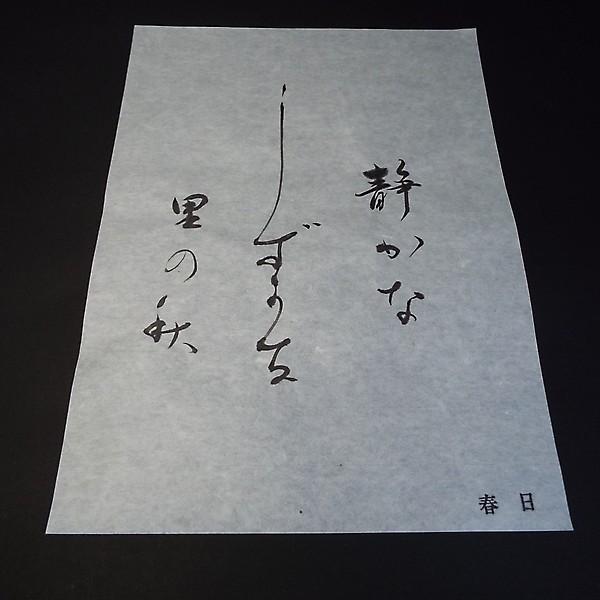 静かな
しずかな
里の秋
春日